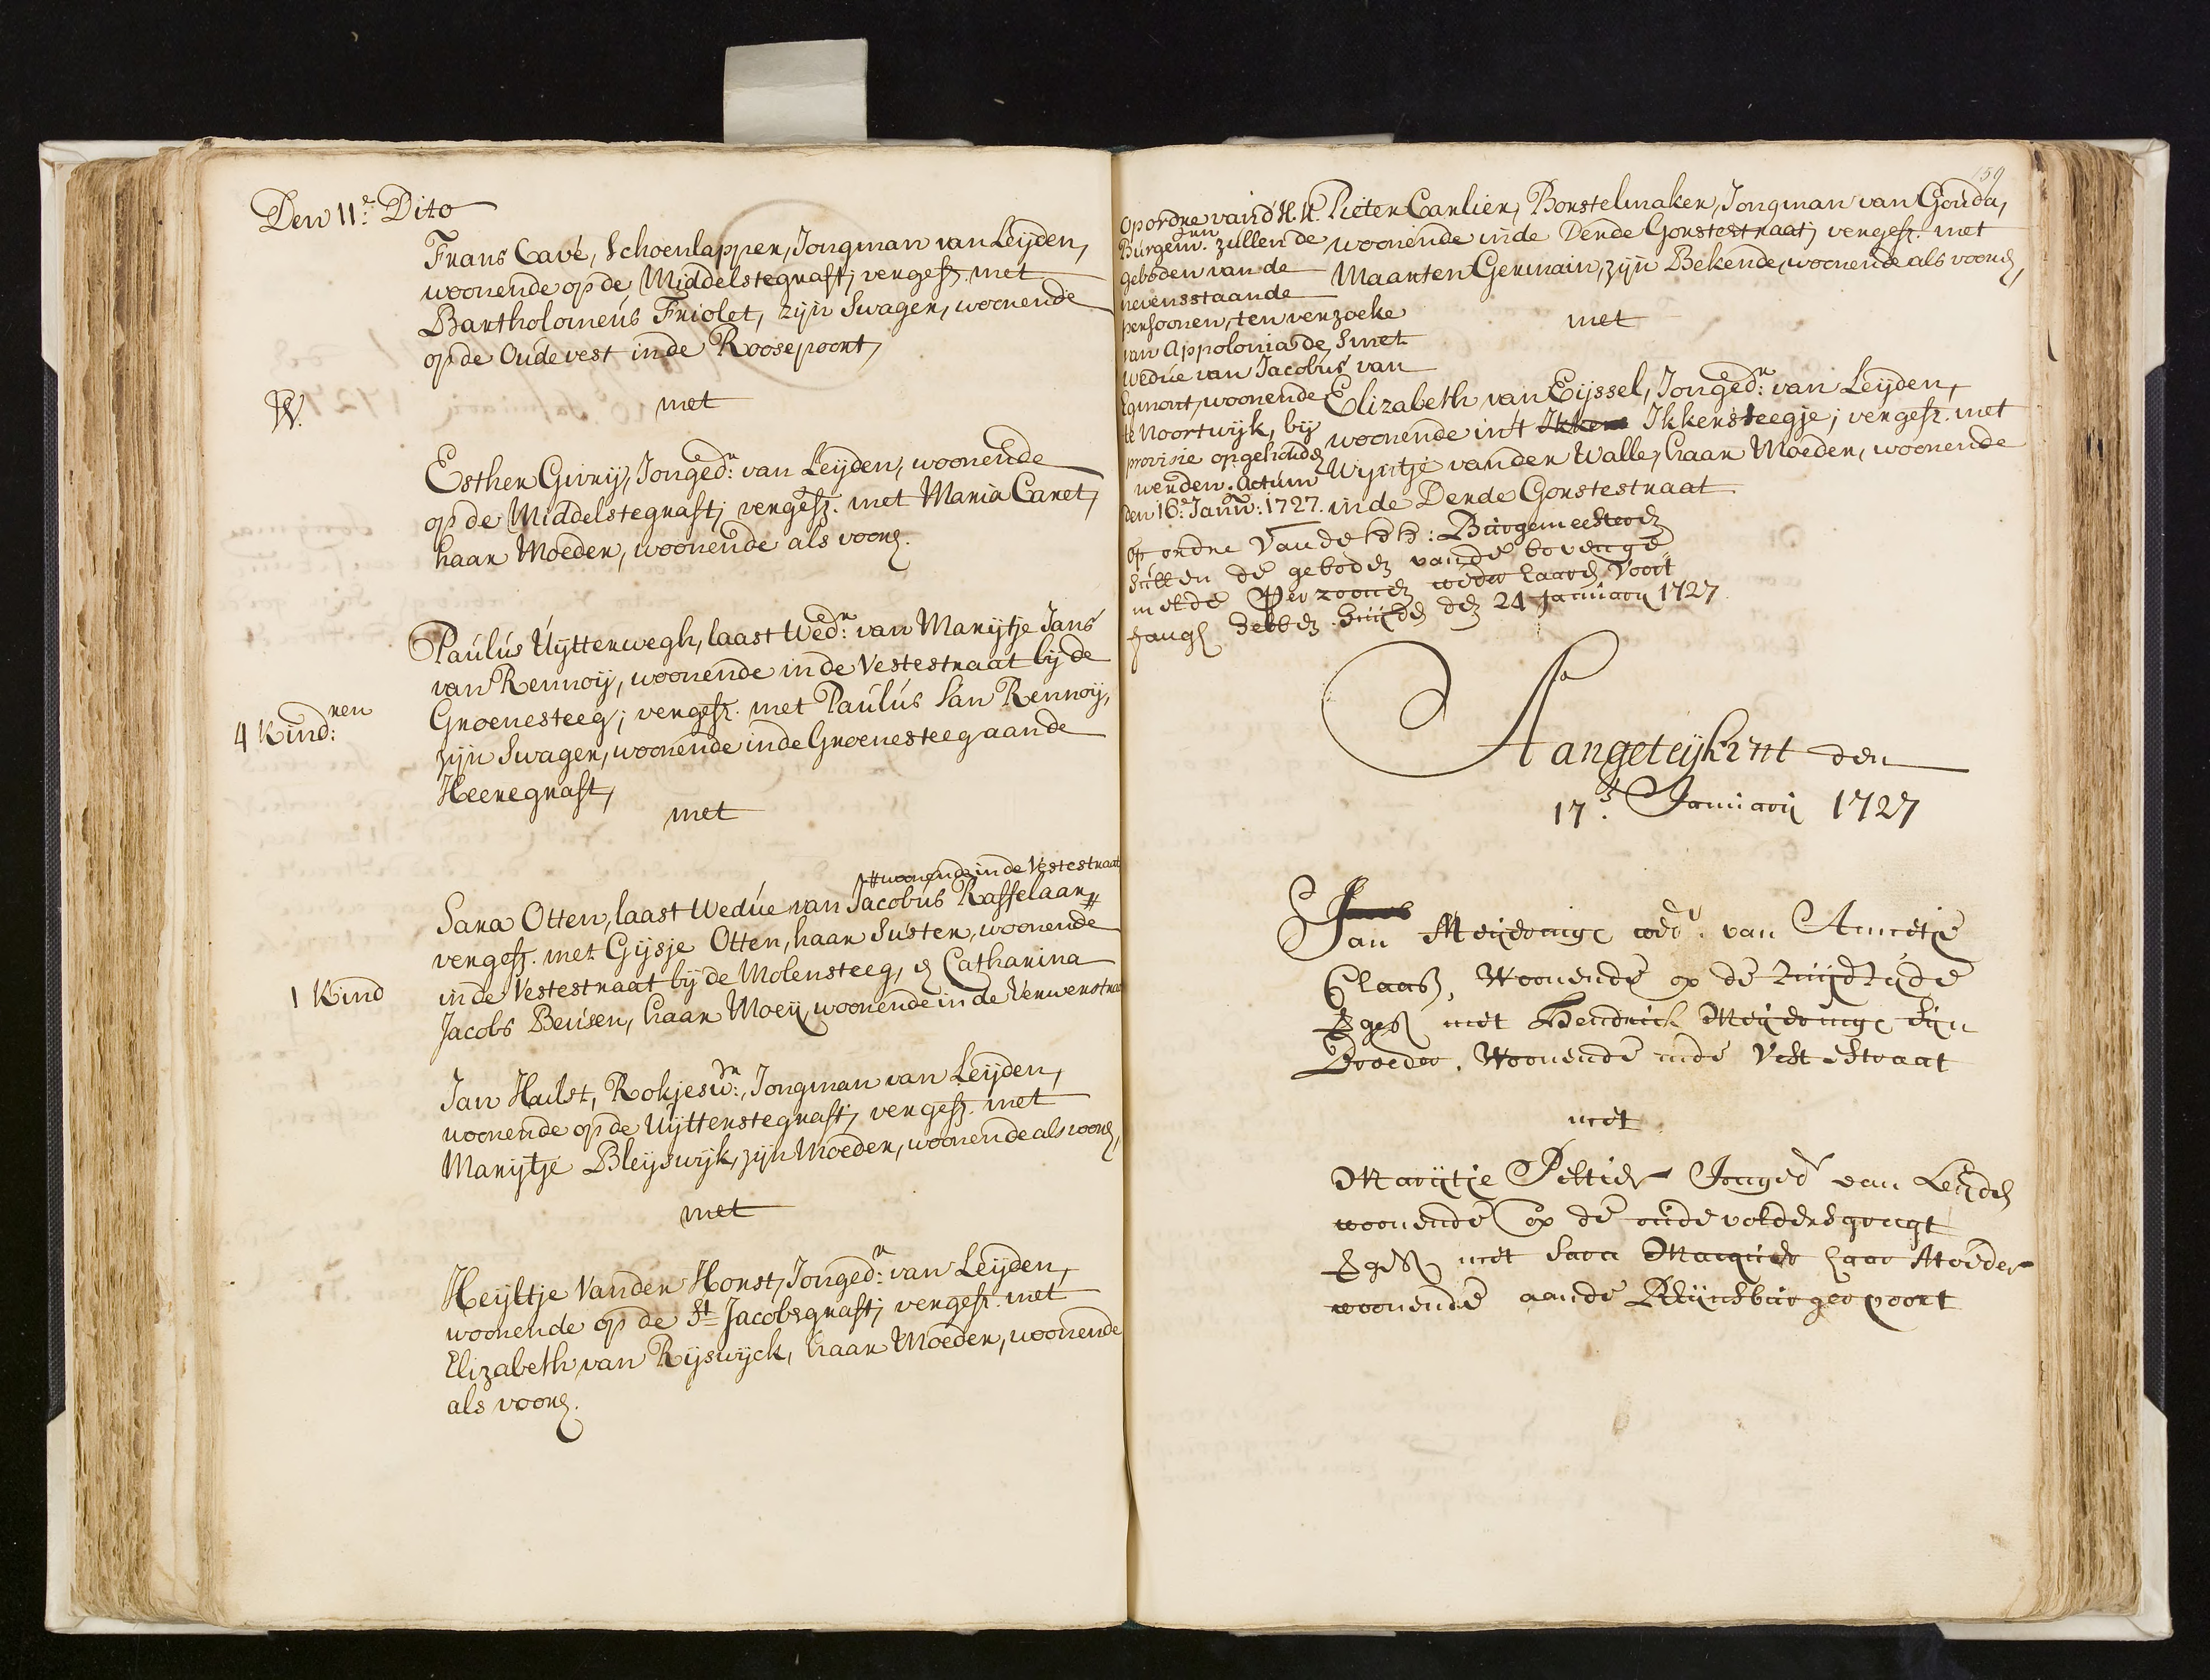 Den 11e. Dito
Frans Cavé, Schoenlapper, Jongman van Leijden,
woonende op de Middelstegraft; vergesz. met
Bartholomeús Friolet, zijn Swager, woonende
op de Oude vest in de Roosepoort,
W.
met
Esther Givrij, Jonged:r van Leijden, woonende
op de Middelstegraft; vergesz. met Maria Caret,
haar Moeder, woonende als voorn.
Paulús Uijtterwegh, laast Wed:r van Marijtje Jans
van Rennoij, woonende in de Vestestraat bij de
Groenesteeg; vergesz. met Paulús San Rennoij,
4 Kind:ren
zijn Swager, woonende in de Groenesteeg aan de
Heeregraft,
met
# woonende in de Vestestraat
Sara Otten, laast Wedúe van Jacobus Rasselaar #
vergesz. met Gijsje Otten, haar Súster, woonende
1 Kind
in de Vestestraat bij de Molensteeg, en Catharina
Jacobs Beúsen, haar Moeij, woonende in de Verwerstraa
Jan Hulst, Rokjesw:r, Jongman van Leijden,
woonende op de Uijtterstegraft; vergesz. met
Marijtje Bleijswijk, zijn Moeder, woonende als voorn,
met
Heijltje Vander Horst, Jonged:r van Leijden,
woonende op de St Jacobsgraft; vergesz. met
Elizabeth van Rijswijck, haar Moeder, woonende
als voorn.
159
Op ordre van d' H.H.
Búrgem:ren zúllen de
geboden van de
nevensstaande
persoonen, ten verzoeke
van Appolonia de Smet
wedúe van Jacobús van
Egmont, woonende
te Noortwijk, bij
provisie opgehouden
werden. Actúm
den 16e: Janú: 1727.
Pieter Carlier, Borstelmaker, Jongman van Goúda,
woonende in de Derde Gorstestraat; vergesz. met
Maarten Germain, zijn Bekende, woonende als voorn,
met
Elizabeth van Eijssel, Jonged:r van Leijden,
woonende in 't Ikkers Ikkersteegje; vergesz. met
Wijntje vander Walle, haar Moeder, woonende
in de Derde Gorstestraat
op ordre van de HH: Burgemeesteren
súllen de geboden van de bovenge
melde Perzoonen weder haaren Voort
gang hebben húijden den 24 Januarij 1727
Aangeteijkent den
17e. Januarij 1727
Jan Meijeringe wedr. van Annetje
Claasz, Woonende op de Zuijdzijde
vergesz met Hendrick Meijeringe sijn
Broeder, Woonende inde Vestestraat
met
Marijtje Peltier Jongedr van Leijden
woonende op de oude voldersgragt
vergesz met Sara Marquier haar Moeder
woonende aande Rhijnsburger poort